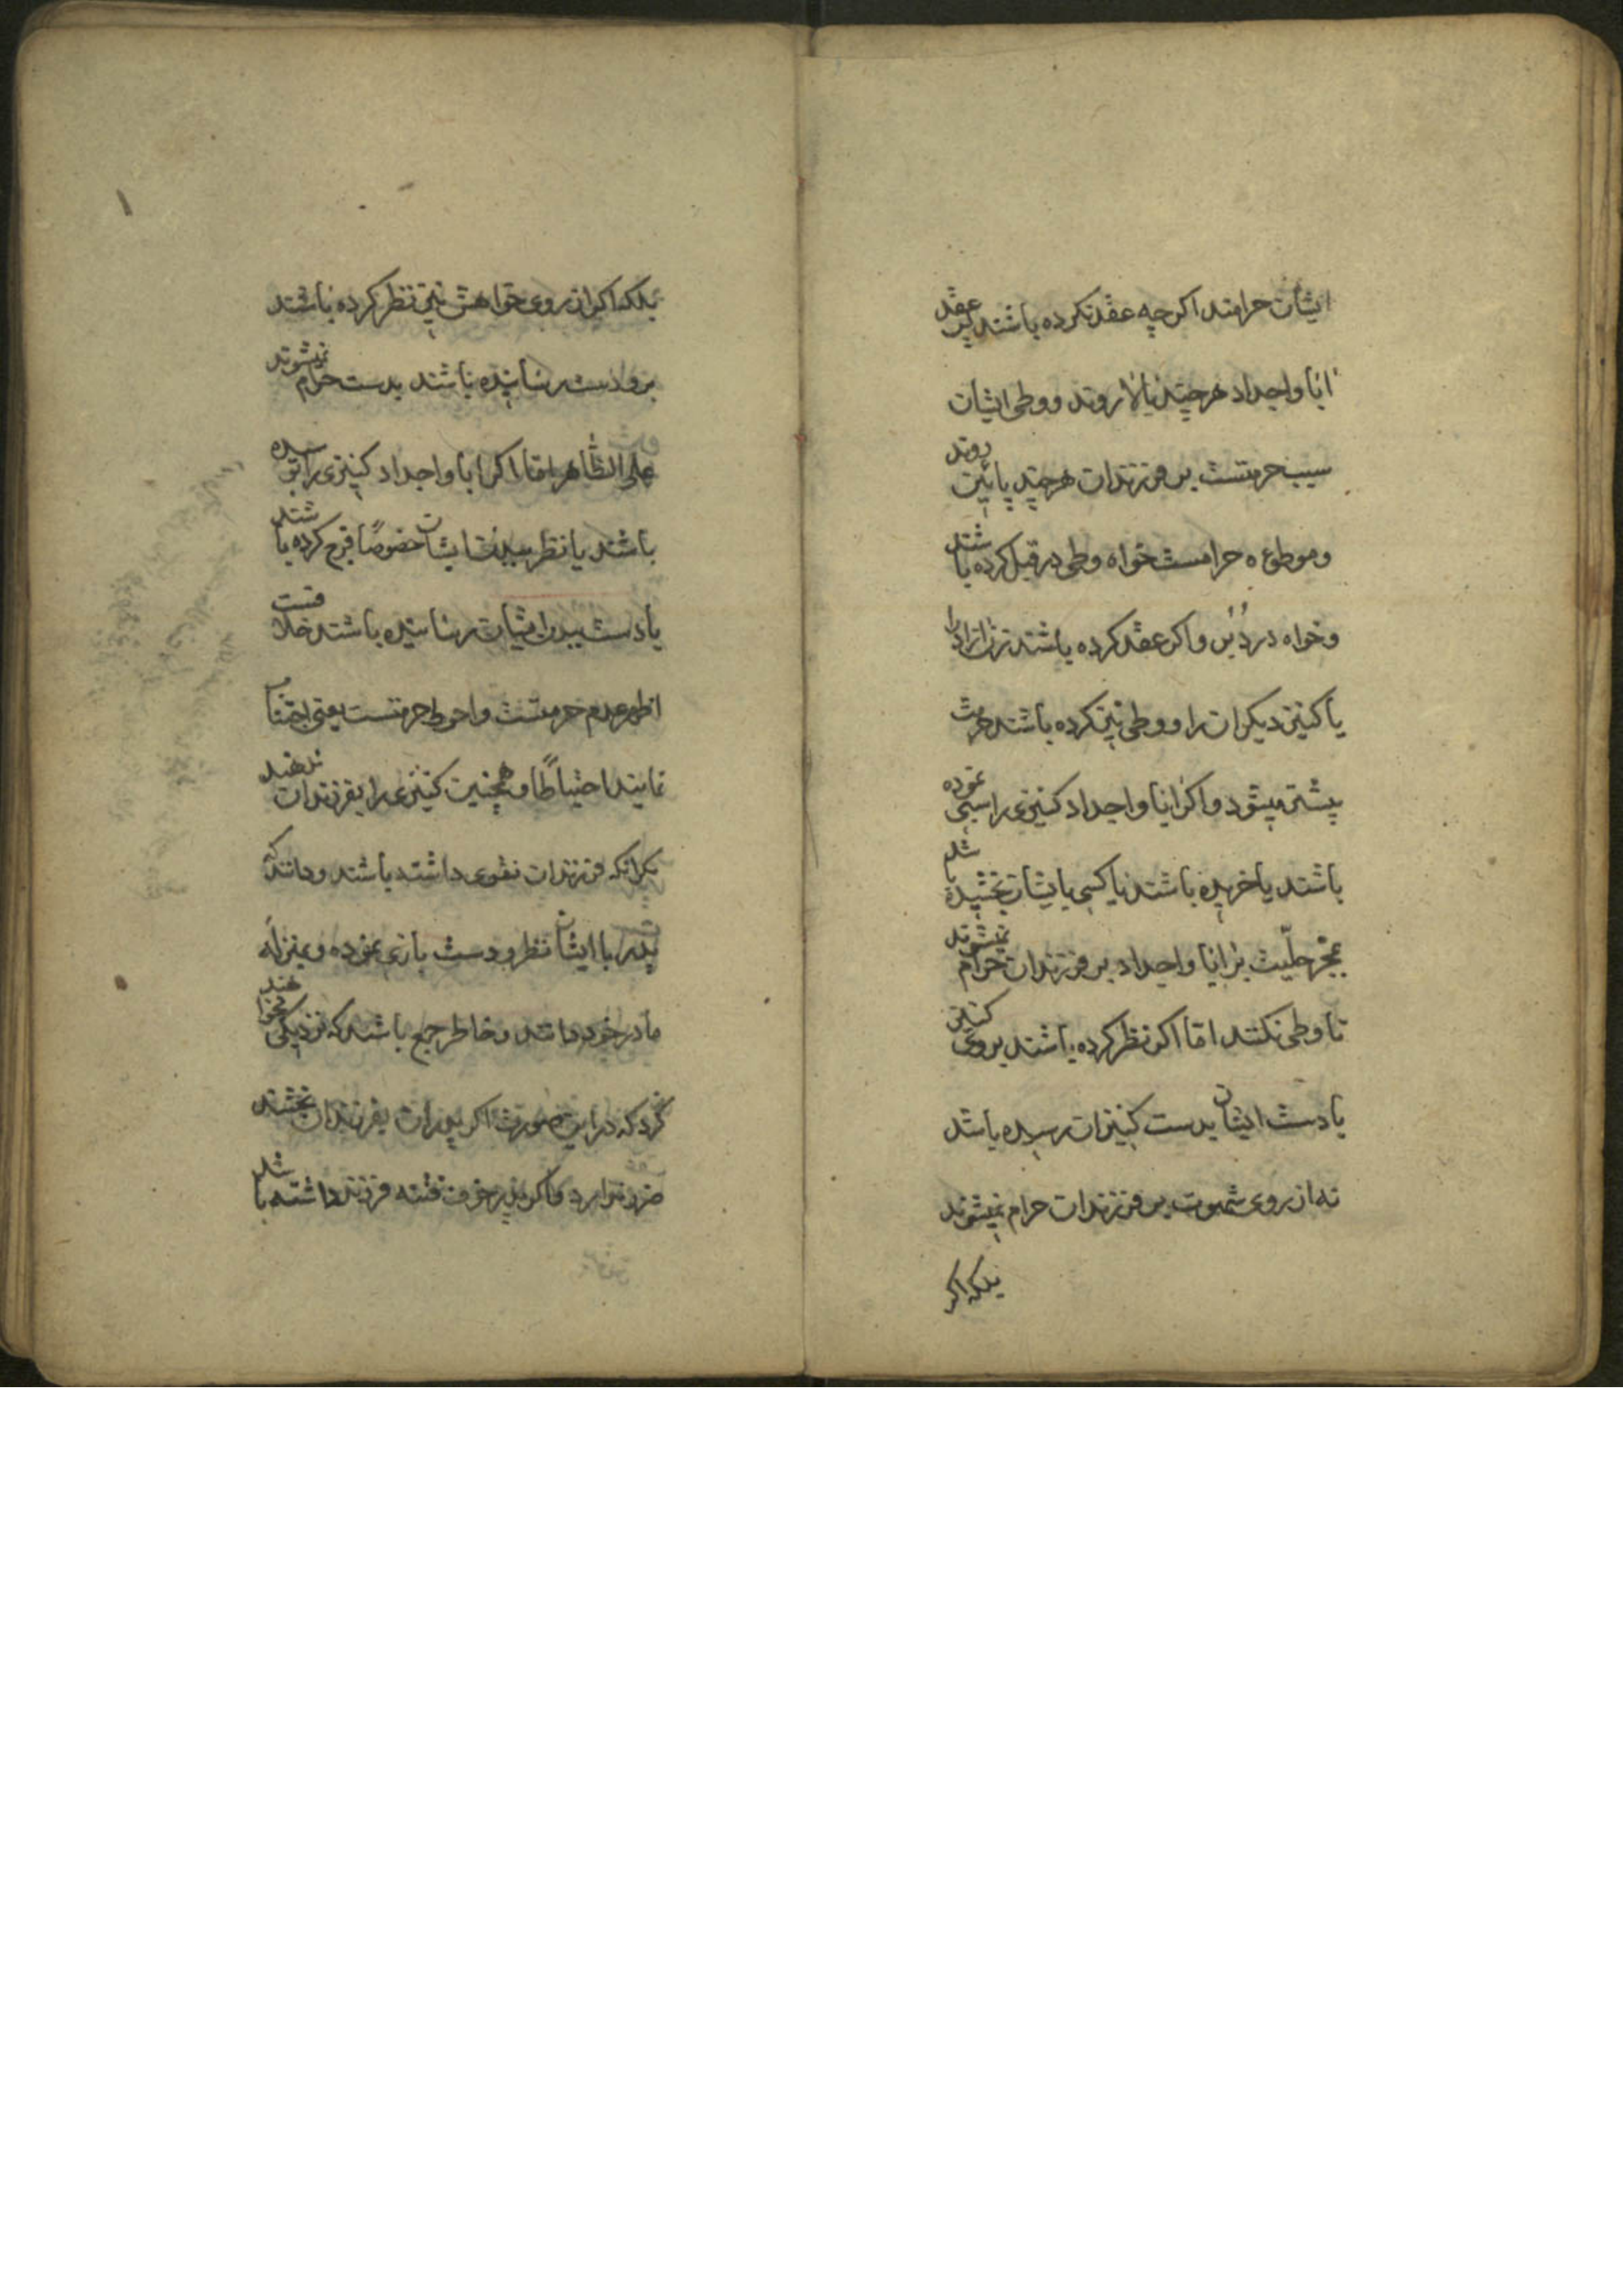 ایشان حرامند اگر چه عقد نکرده باشند پس عقد
ابا و اجداد هر چند بالا روند و وطی ایشان
سبب حرمتست بر فرزندان هر چند پایین روند
و موطوءه حرامست خواه وطی در قبل کرده باشند
و خواه در دبر و اگر عقد کرده باشند زن ازاد را
یا کنیز دیگران را و وطی نیز کرده باشند حرمت
بیشتر میشود و اگر ابا و اجداد کنیزی را سبی نموده
باشند یا خریده باشند یا کسی بایشان بخشیده باشد
بمجرد حلیت بر ابا و اجداد بر فرزندان حرام نمیشوند
تا وطی نکنند اما اگر نظر کرده باشند بروی کنیز
یا دست ایشان بدست کنیزان رسیده باشد
نه از روی شهوت بر فرزندان حرام نمیشوند
بلکه اگر
بلکه اگر از روی خواهش نیز نظر کرده باشند
برو دست رسانیده باشند بدست حرام نمیشوند
علی الظاهر اما اگر ابا و اجداد کنیزی را بوسیده
باشند یا نظر ببدن ایشان خصوصا فرج کرده باشند
یا دست ببدن ایشان رسانیده باشند خلافست
اظهر عدم حرمتست و احوط حرمتست یعنی اجتناب
نمایند احتیاطا و همچنین کنیزی را بفرزندان ندهند
مگر انکه فرزندان تقوی داشته باشند و دانند که
پدر با ایشان نظر و دست بازی نموده و بمنزله
مادر خود دانند و خاطر جمع باشد که نزدیکی نخواهند
کرد که در این صورت اگر پدران بفرزندان بخشند
ضرر ندارد و اگر پدر خوف فتنه فرزند داشته باشد